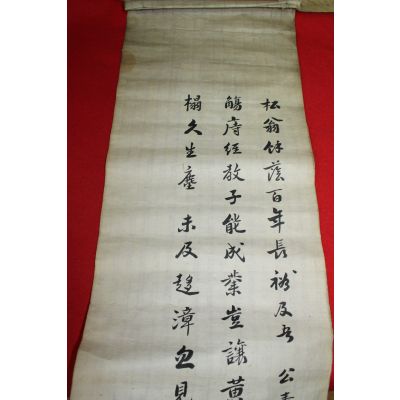 松翁餘蔭百年長 裕及吾 公壽
觴庤經教子能成業豈讓黃
榻久生塵 未及趍漳忽見